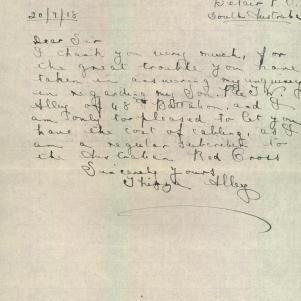 Belair P.O.
20/7/18 South Australia
Dear Sir
I thank you very much, for
the great trouble you have
taken in answering my enquiry
in regarding my Son Pte
Alley of 48th Battalion, and I
am only too pleased to let you
have the cost of cabling, as I
am a regular subscriber to
the Australian Red Cross
Sincerely Yours
Alley